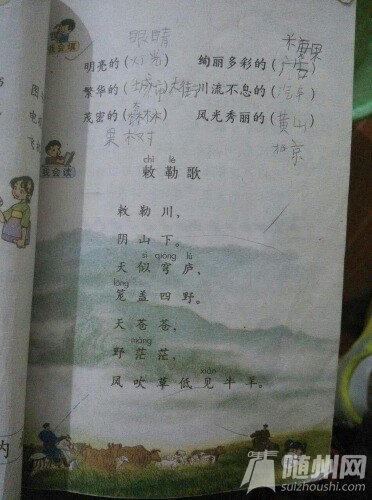 我会填
眼睛
糖果
明亮的（灯光）  绚丽多彩的（广告）
繁华的（城市大街）川流不息的（汽车）
茂密的（森林）  风光秀丽的（黄山）
果树
北京
chì lè
敕勒歌
我会读
敕勒川，
阴山下。
sì qióng lú
天似穹庐，
lǒng
笼盖四野。
天苍苍，
máng
野茫茫，
xiàn
风吹草低见牛羊。
随州网
suizhoushi.com